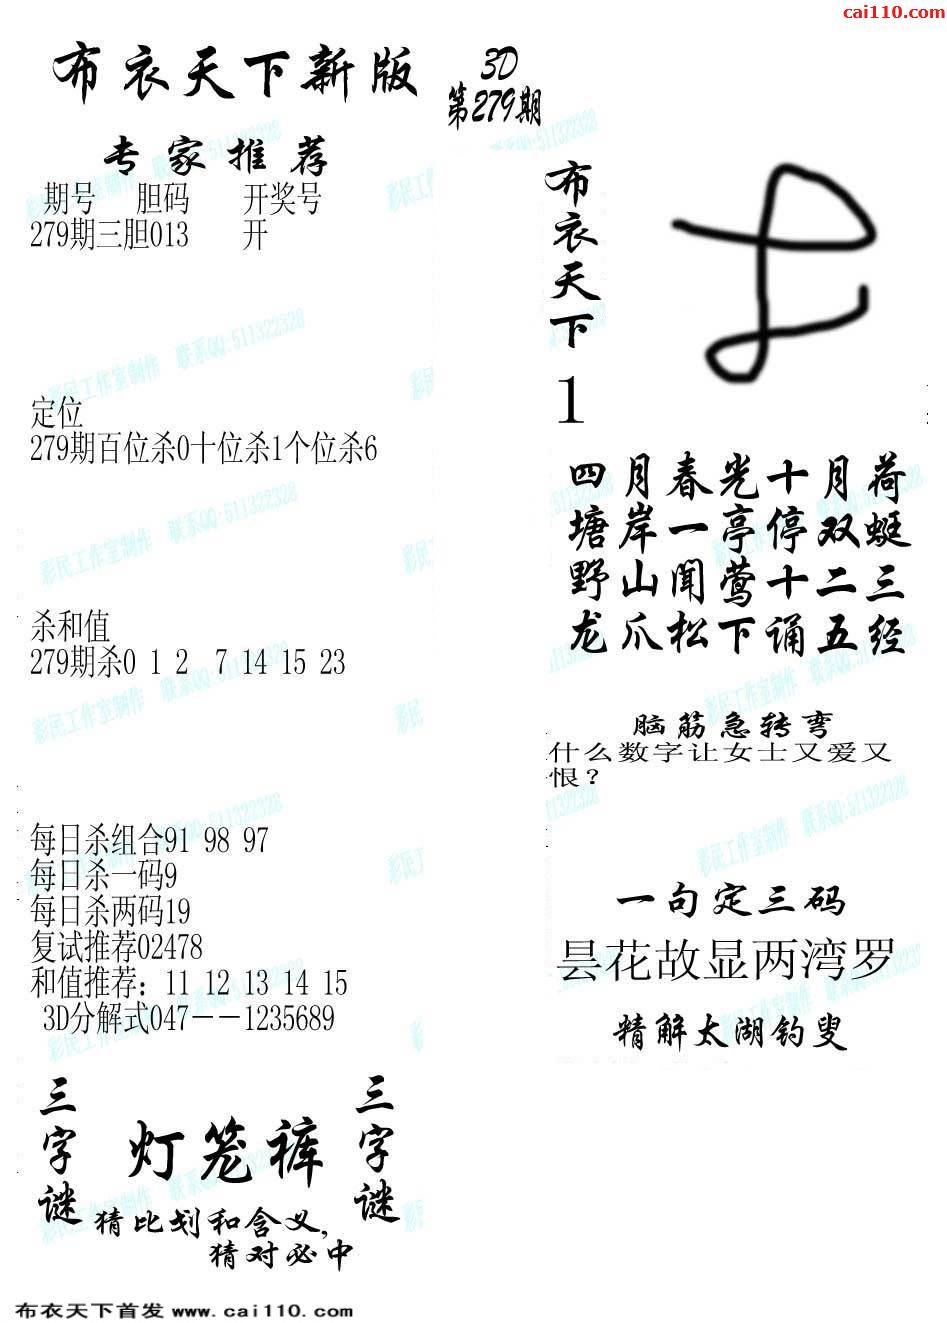 cai110.com
布衣天下新版
3D
第279期
专家推荐
期号 胆码 开奖号
279期三胆013 开
定位
279期百位杀0十位杀1个位杀6
杀和值
279期杀0 1 2 7 14 15 23
每日杀组合91 98 97
每日杀一码9
每日杀两码19
复试推荐02478
和值推荐：11 12 13 14 15
3D分解式047－－1235689
三字谜
灯笼裤
三字谜
猜比划和含义,
猜对必中
布衣天下
1
四月春光十月荷
塘岸一亭停双蜓
野山闻莺十二三
龙爪松下诵五经
脑筋急转弯
什么数字让女士又爱又
恨？
一句定三码
昙花故显两湾罗
精解太湖钓叟
彩民工作室制作 联系QQ:511322328
布衣天下首发 www.cai110.com